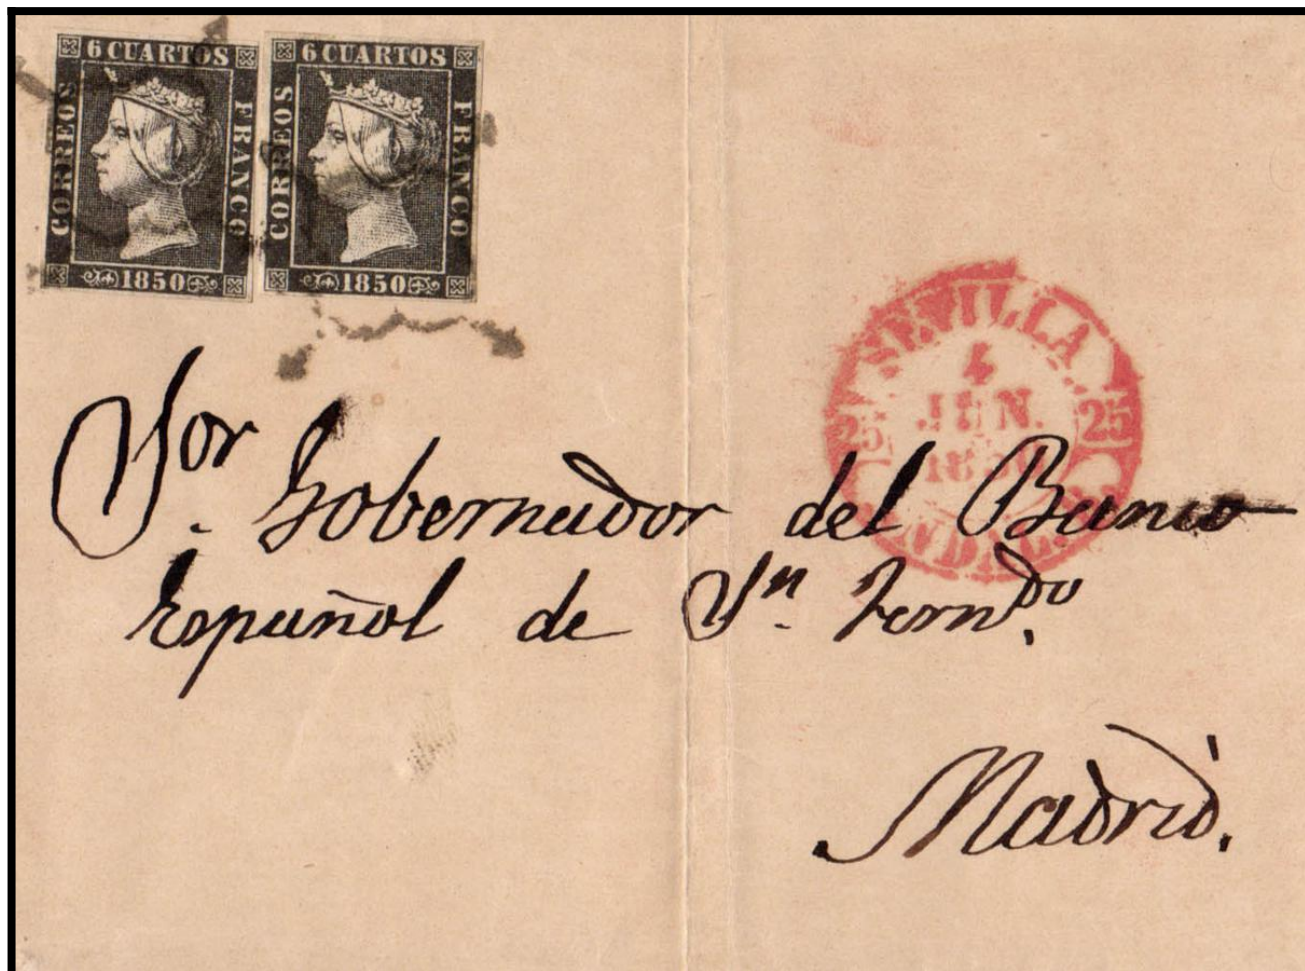 6 CUARTOS
CORREOS
FRANCO
1850
6 CUARTOS
CORREOS
FRANCO
1850
SEVILLA
4
JUN.
25 25
1850
Sor. Gobernador del Banco
Español de Sn. Ferndo.
Madrid.